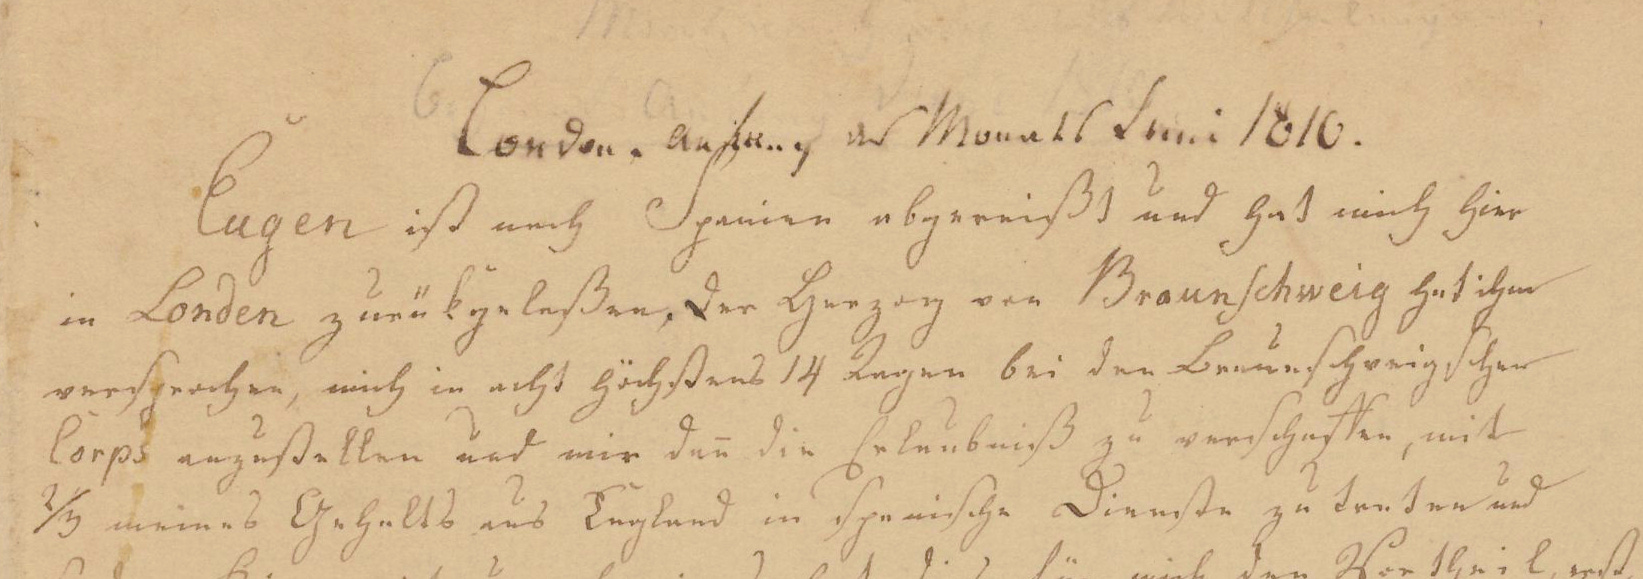 London. Anfang des Monats Juni 1810.
Eugen ist nach Spanien abgereißt und hat mich hier
in London zurükgelaßen, der Herzog von Braunschweig hat ihm
versprochen, mich in acht höchstens 14 Tagen bei den Braunschweigschen
Corps anzustellen und mir dañ die Erlaubniß zu verschaffen, mit
2/3 meines Gehalts aus England in spanische Dienste zu treten und
für mich den Vortheil, erst